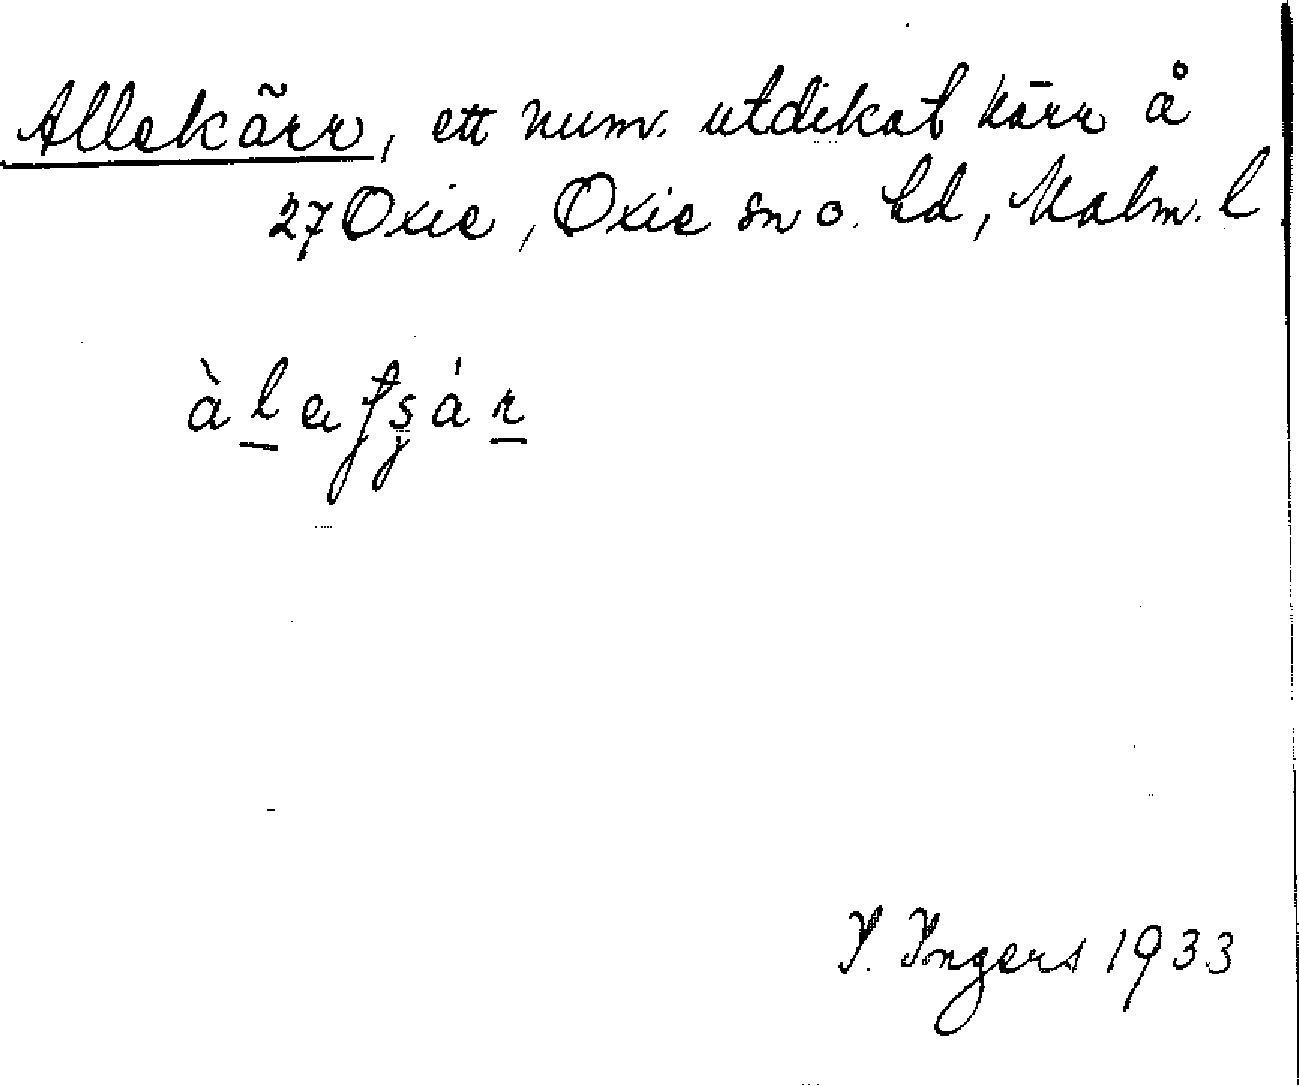 Allekärr, ett num. utdikat kärr å
27 Oxie, Oxie sn o. hd, Malm. l
I. Ingers 1933